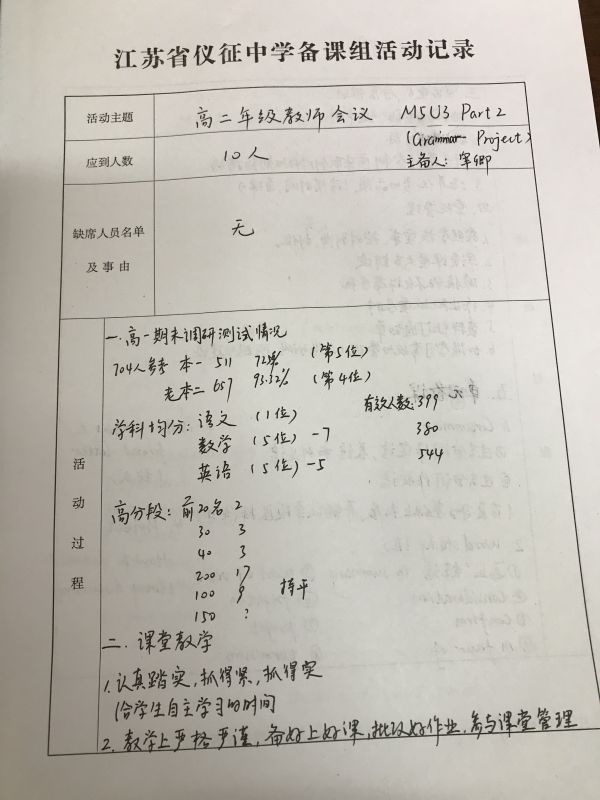 江苏省仪征中学备课组活动记录
活动主题 高二年级教师会议 M5U3 Part 2
(Grammar- Project)
应到人数 10人 主备人:
缺席人员名单及事由 无
活动过程
一.高一期末调研测试情况
704人参考 本一 511 72% (第5位)
老本二 657 93.32% (第4位)
有效人数: 399
学科均分: 语文 (1位)
数学 (5位) -7 380
英语 (5位) -5 544
高分段: 前20名 2
30 3
40 3
200 17
100 9 持平
150 ?
二.课堂教学
1.认真踏实,抓得紧,抓得实
给学生自主学习的时间
2.教学上严格严谨,备好上好课,批改好作业,参与课堂管理